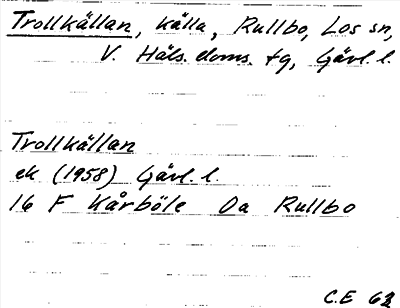 Trollkällan, källa, Rullbo, Los sn,
V. Häls. doms. tg, Gävl. l.
Trollkällan
ek (1958) Gävl. l.
16 F Kårböle Da Rullbo
C.E 62